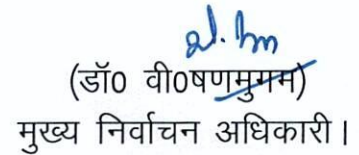 (डॉ0 वी0षणमुगम)
मुख्य निर्वाचन अधिकारी।